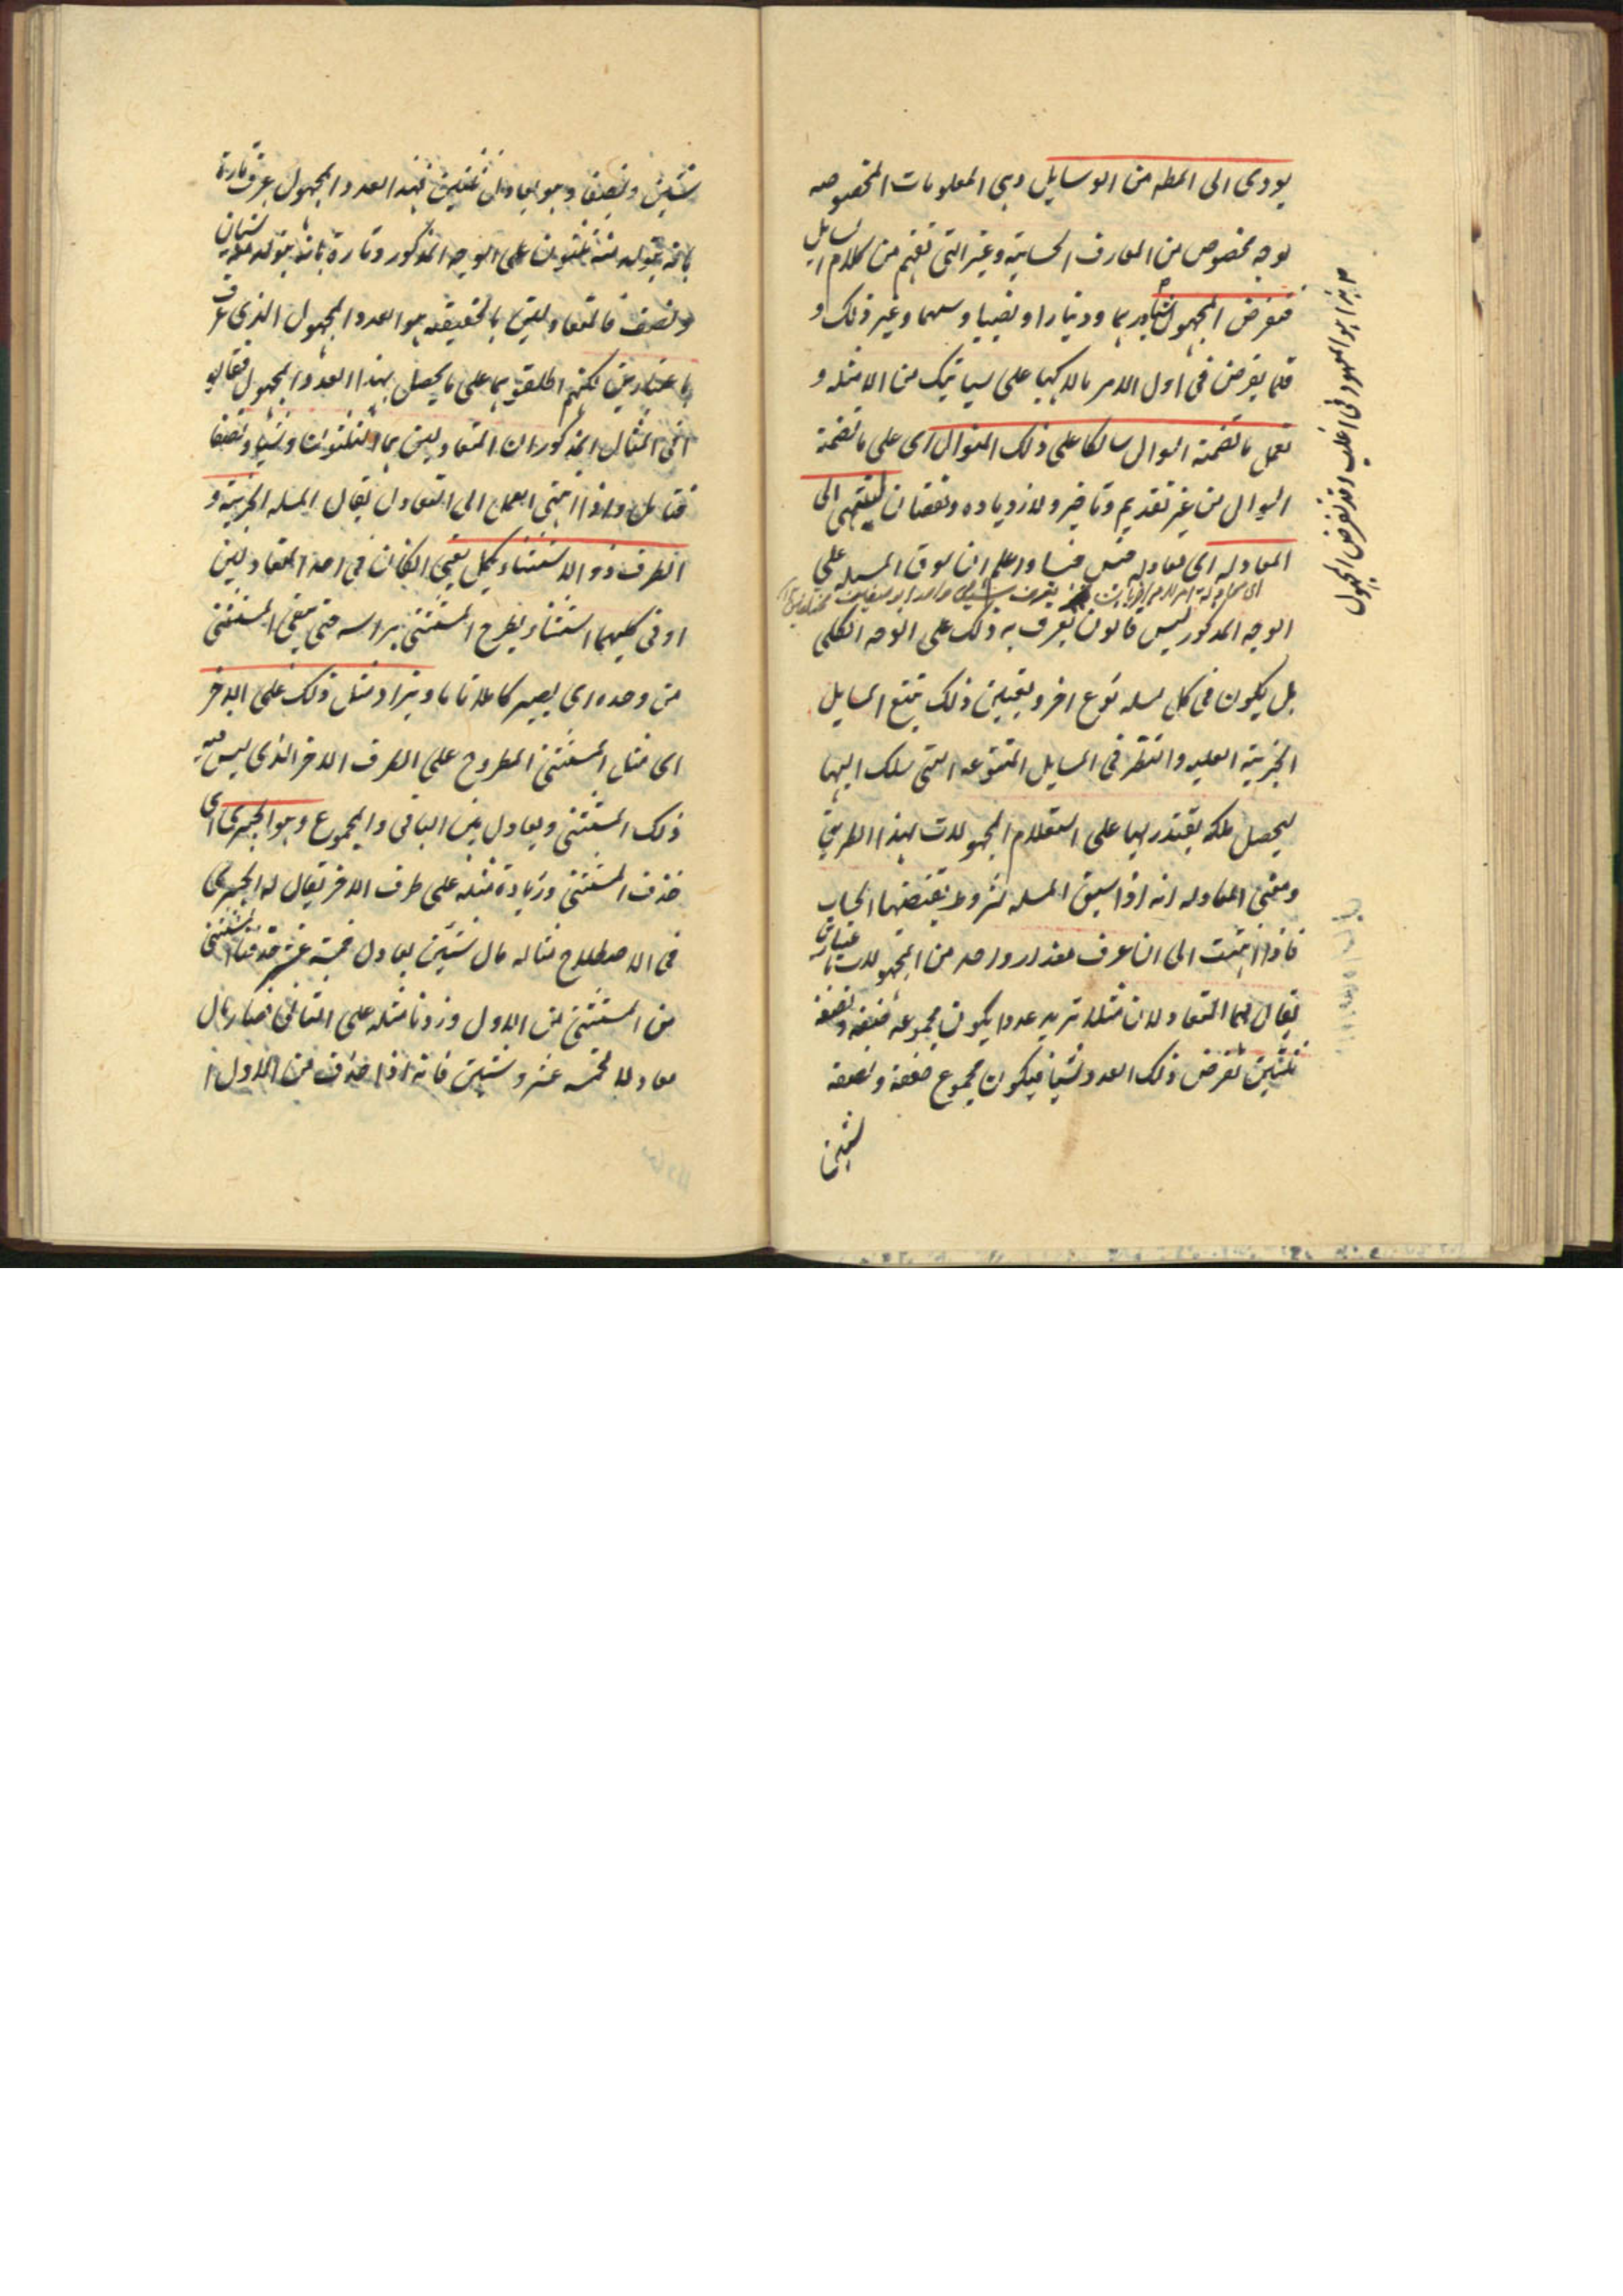 يودى الى المطه من الوسايل وهى المعلومات المخصوصه
بوجه مخصوص من المعارف الحسابية وغير التى تفهم من كلام السايل
فتفرض المجهول شيا ودرهما ودينارا ونصيبا وسهما وغير ذلك و
قلما يفرض فى اول الامر مالا وكعبا على سياتيك من الامثله و
تعمل ما تضمنه السوال سالكا على ذلك المنوال اى على ما تضمنه
السوال من غير تقديم وتاخير ولا زدياده ونقصان لينتهى الى
المعادله اى معادله واعلم ان سوق المسله على
الوجه المذكور ليس قانون يعرف به ذلك على الوجه الكلى
بل يكون فى كل مسله نوع اخر ويعين ذلك تتبع المسايل
الجزيية العليه والنظر فى المسايل المتنوعه التى سلك اليها
ليحصل ملكه يقتدر بها على استعلام المجهولات بهذا الطريق
ومعنى المعادله انه اذا سيق المسله بشروط يقتضيها الحساب
فاذا انتهت الى ان عرف مقدار واحد من المجهولات بعبارتين
يقال لهما المتعادلان مثلا نريد عددا يكون مجموعه ضعفه ونصفه
ثلثين نفرض ذلك العدد شيا فيكون مجموع ضعفه ونصفه
شيين
هذا هو المعهود فى اغلب وقد تفرض المجهول
شيين ونصفا وهو يعادل ثلثين فهذا العدد المجهول عرف تارة
بانه يتولد منه ثلثون على الوجه المذكور وتارة بانه يتولد منه شيان
ونصف فالمتعادلين بالحقيقه هو العدد المجهول الذى عرف
باعتبارين لكنهم اطلقوهما على ما يحصل بهذا العدد المجهول فقالوا
فى المثال المذكور ان المتعادلين هما الثلثون وشيا ونصفا
فتامل واذا انتهى العمل الى التعادل يقال المسله الجزيية و
الطرف ذو الاستثناء يكمل يعنى ان كان فى احد المتعادلين
او فى كليهما استثناء يطرح المستثنى براسه حتى يبقى المستثنى
من وحده اى يصير كاملا تاما ويزاد مثل ذلك على الاخر
اى مثل المستثنى المطروح على الطرف الاخر الذى ليس فيه
ذلك المستثنى ويعادل بين الباقى والمجموع وهو الجبر اى
حذف المستثنى وزيادة مثله على طرف الاخر يقال له الجبر
فى الاصطلاح مثاله مال شيين يعادل خمسة عشر حذفنا المستثنى
من المستثنى من الاول وزدنا مثله على الثانى فصار مال
معادلا لخمسه عشر وشيين فانه اذا حذف من الاول